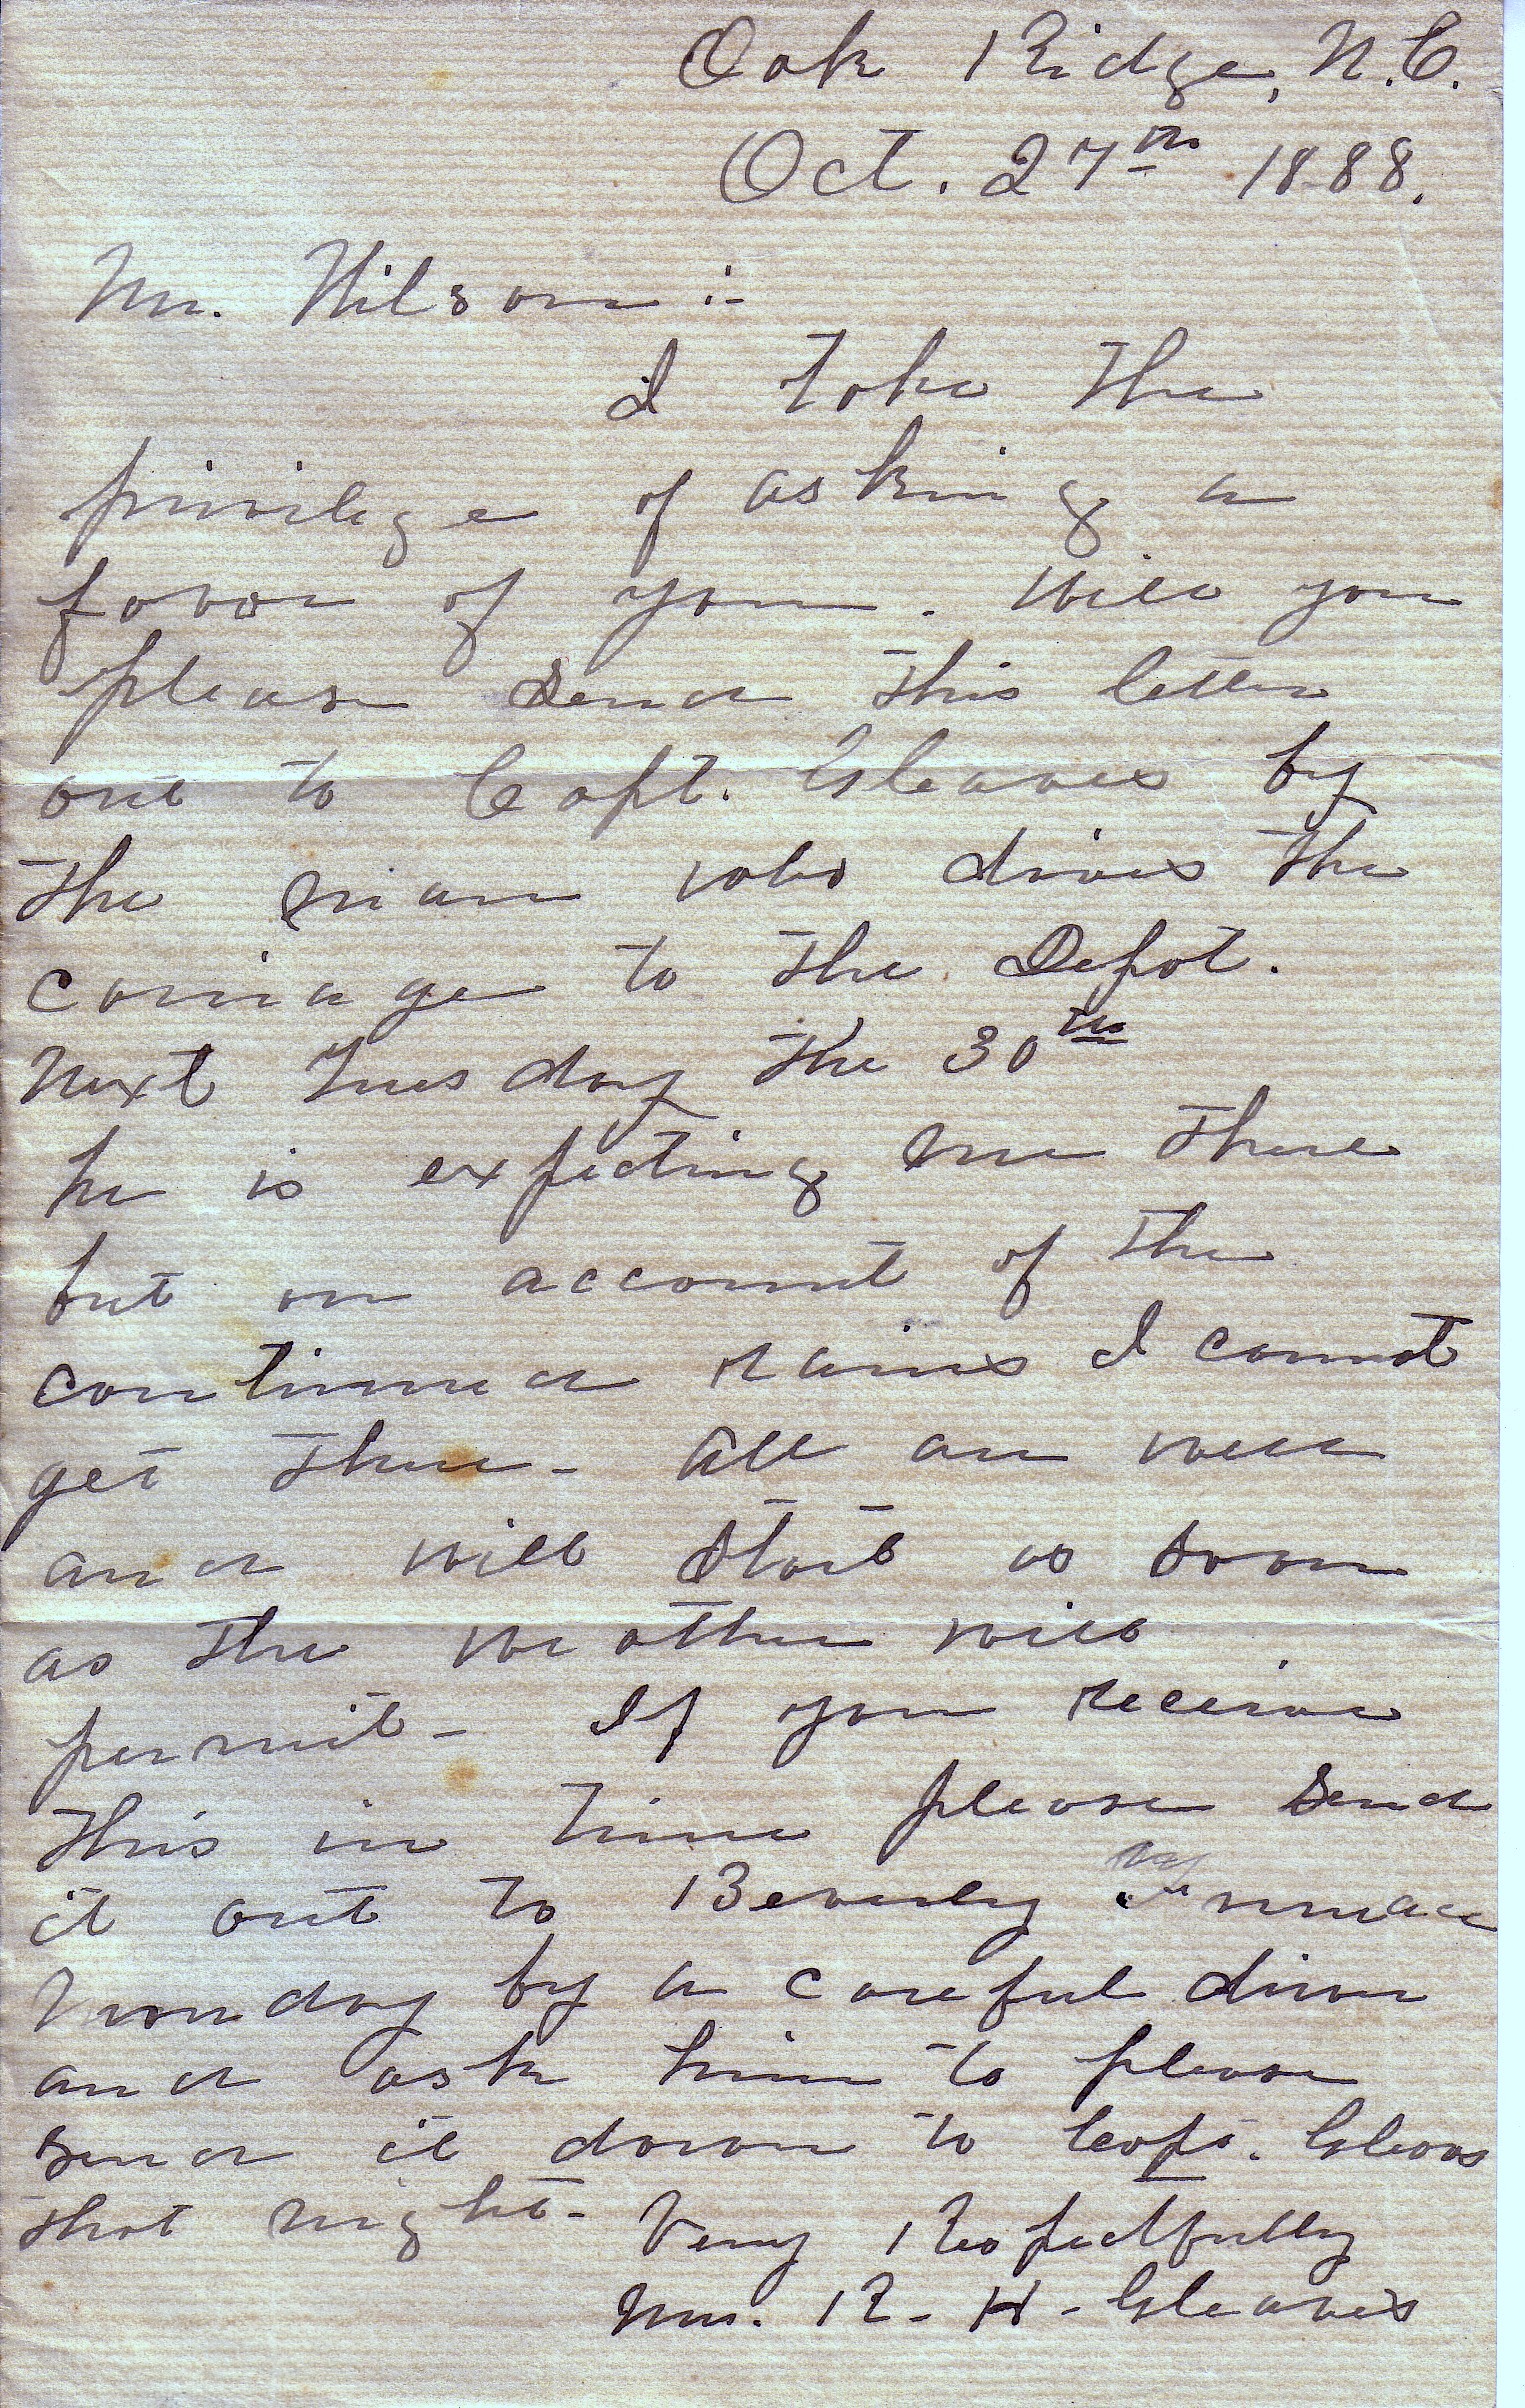 Oak Ridge, N.C.
Oct. 27th 1888.
Mr. Wilson :-
I take the
privilege of asking a
favor of you. Will you
please send this letter
out to Capt. Gleaves by
the man who drives the
carriage to the Depot.
Next Tuesday the 30th
he is expecting me there
but on account of the
continued rains I cannot
get there - All are well
and will start as soon
as the weather will
permit - If you receive
this in time please send
it out to Beverly Furnace
Monday by a careful driver
and ask him to please
send it down to Capt. Gleaves
that night -
Very Respectfully
Mrs. R. H. Gleaves